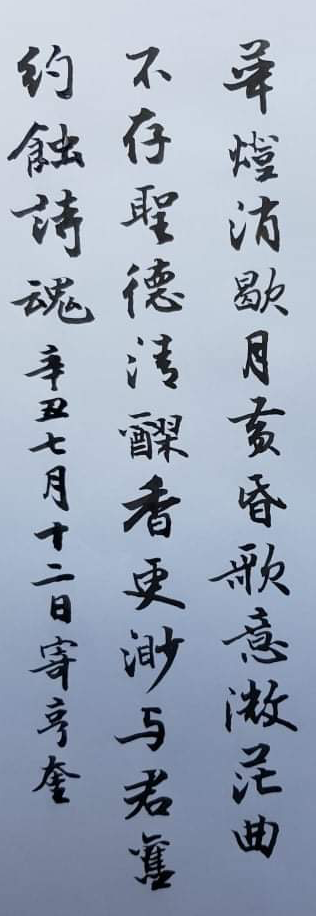 華燈消歇月黃昏歌意微茫曲
不存聖德清醪香更渺与君舊
約蝕詩魂辛丑七月十二日寄亭奎